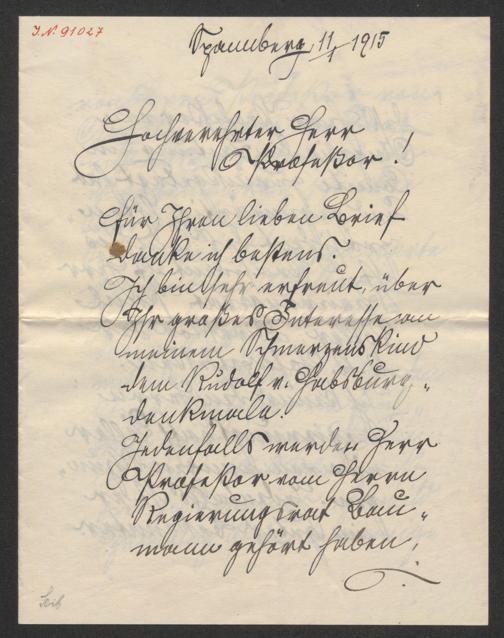 I.N. 91027
Spannberg 11/1 1915
Hochverehrter Herr
Profeßor!
für Ihren lieben Brief
danke ich bestens.
Ich bin sehr erfreut, über
Ihr großes Interesse am
meinem Schmerzenskind
dem Rudolf v. Habsburg„
denkmale.
Jedenfalls werden Herr
Profeßor vom Herrn
Regierungsrat Bau„
mann gehört haben,